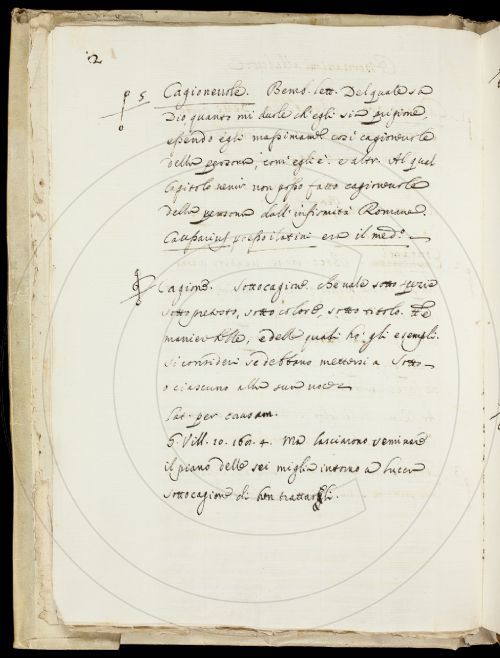 2
5 Cagionevole. Bemb. lett. Del quale sa
Dio quanto mi duole ch'egli sia prigione,
essendo egli massimame così cagionevole
della persona, com'egli è. e altr. Al qual
Capitolo venir non posso fatto cagionevole
della persona dall'infirmità Romane.
Causarius presso i latini era il medo.
Cagione. Sotto cagione. che vale sotto spezie
sotto pretesto, sotto colore, sotto titolo.
maniere belle, e delle quali ho gli esempli.
si consideri se debbano mettersi a Sotto
o ciascuno alla sua voce
Lat. per causam.
G. Vill. 10. 160. 4. Ma lasciarono seminare
il piano delle sei miglia intorno a Lucca
sotto cagione di ben trattargli.